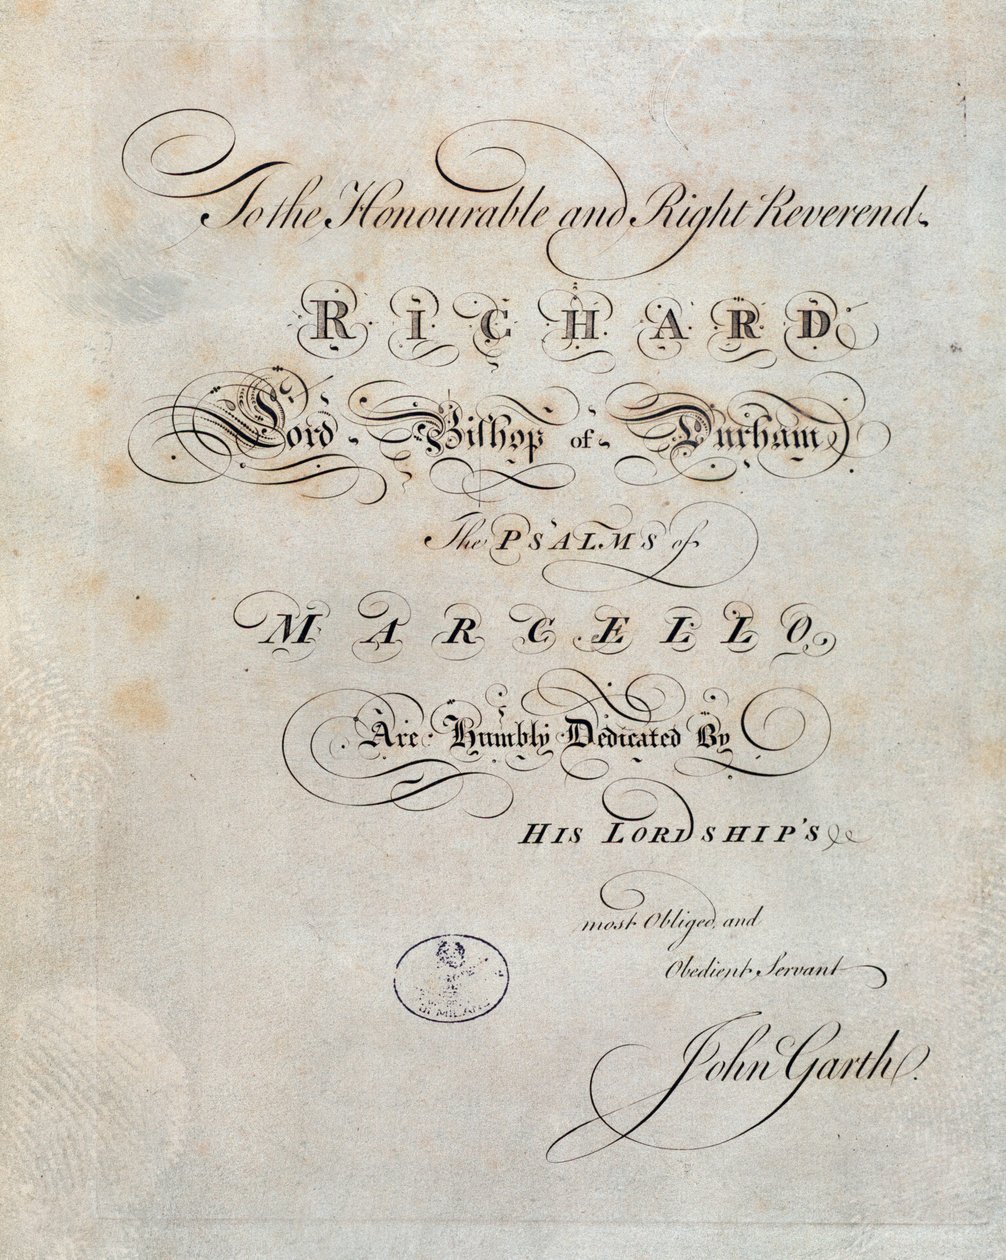 To the Honourable and Right Reverend
RICHARD
Lord Bishop of Durham
The PSALMS of
MARCELLO
Are Humbly Dedicated By
HIS LORDSHIP'S
most Obliged, and
Obedient Servant
John Garth.